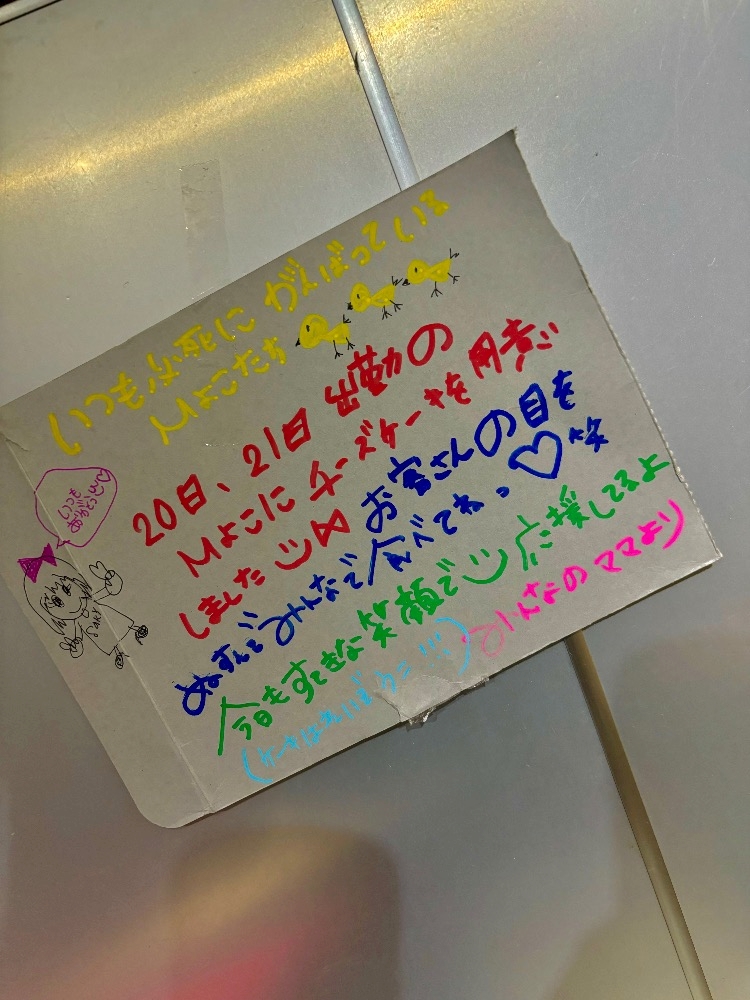 いつも必死にがんばっている
ひよこたち
20日、21日 出勤の
ひよこにチーズケーキを用意
しました お客さんの目を
ぬすんでみんなで食べてねっ♡笑
今日もすてきな笑顔で 応援してるよ
みんなのママより
いつも
ありがとう♡